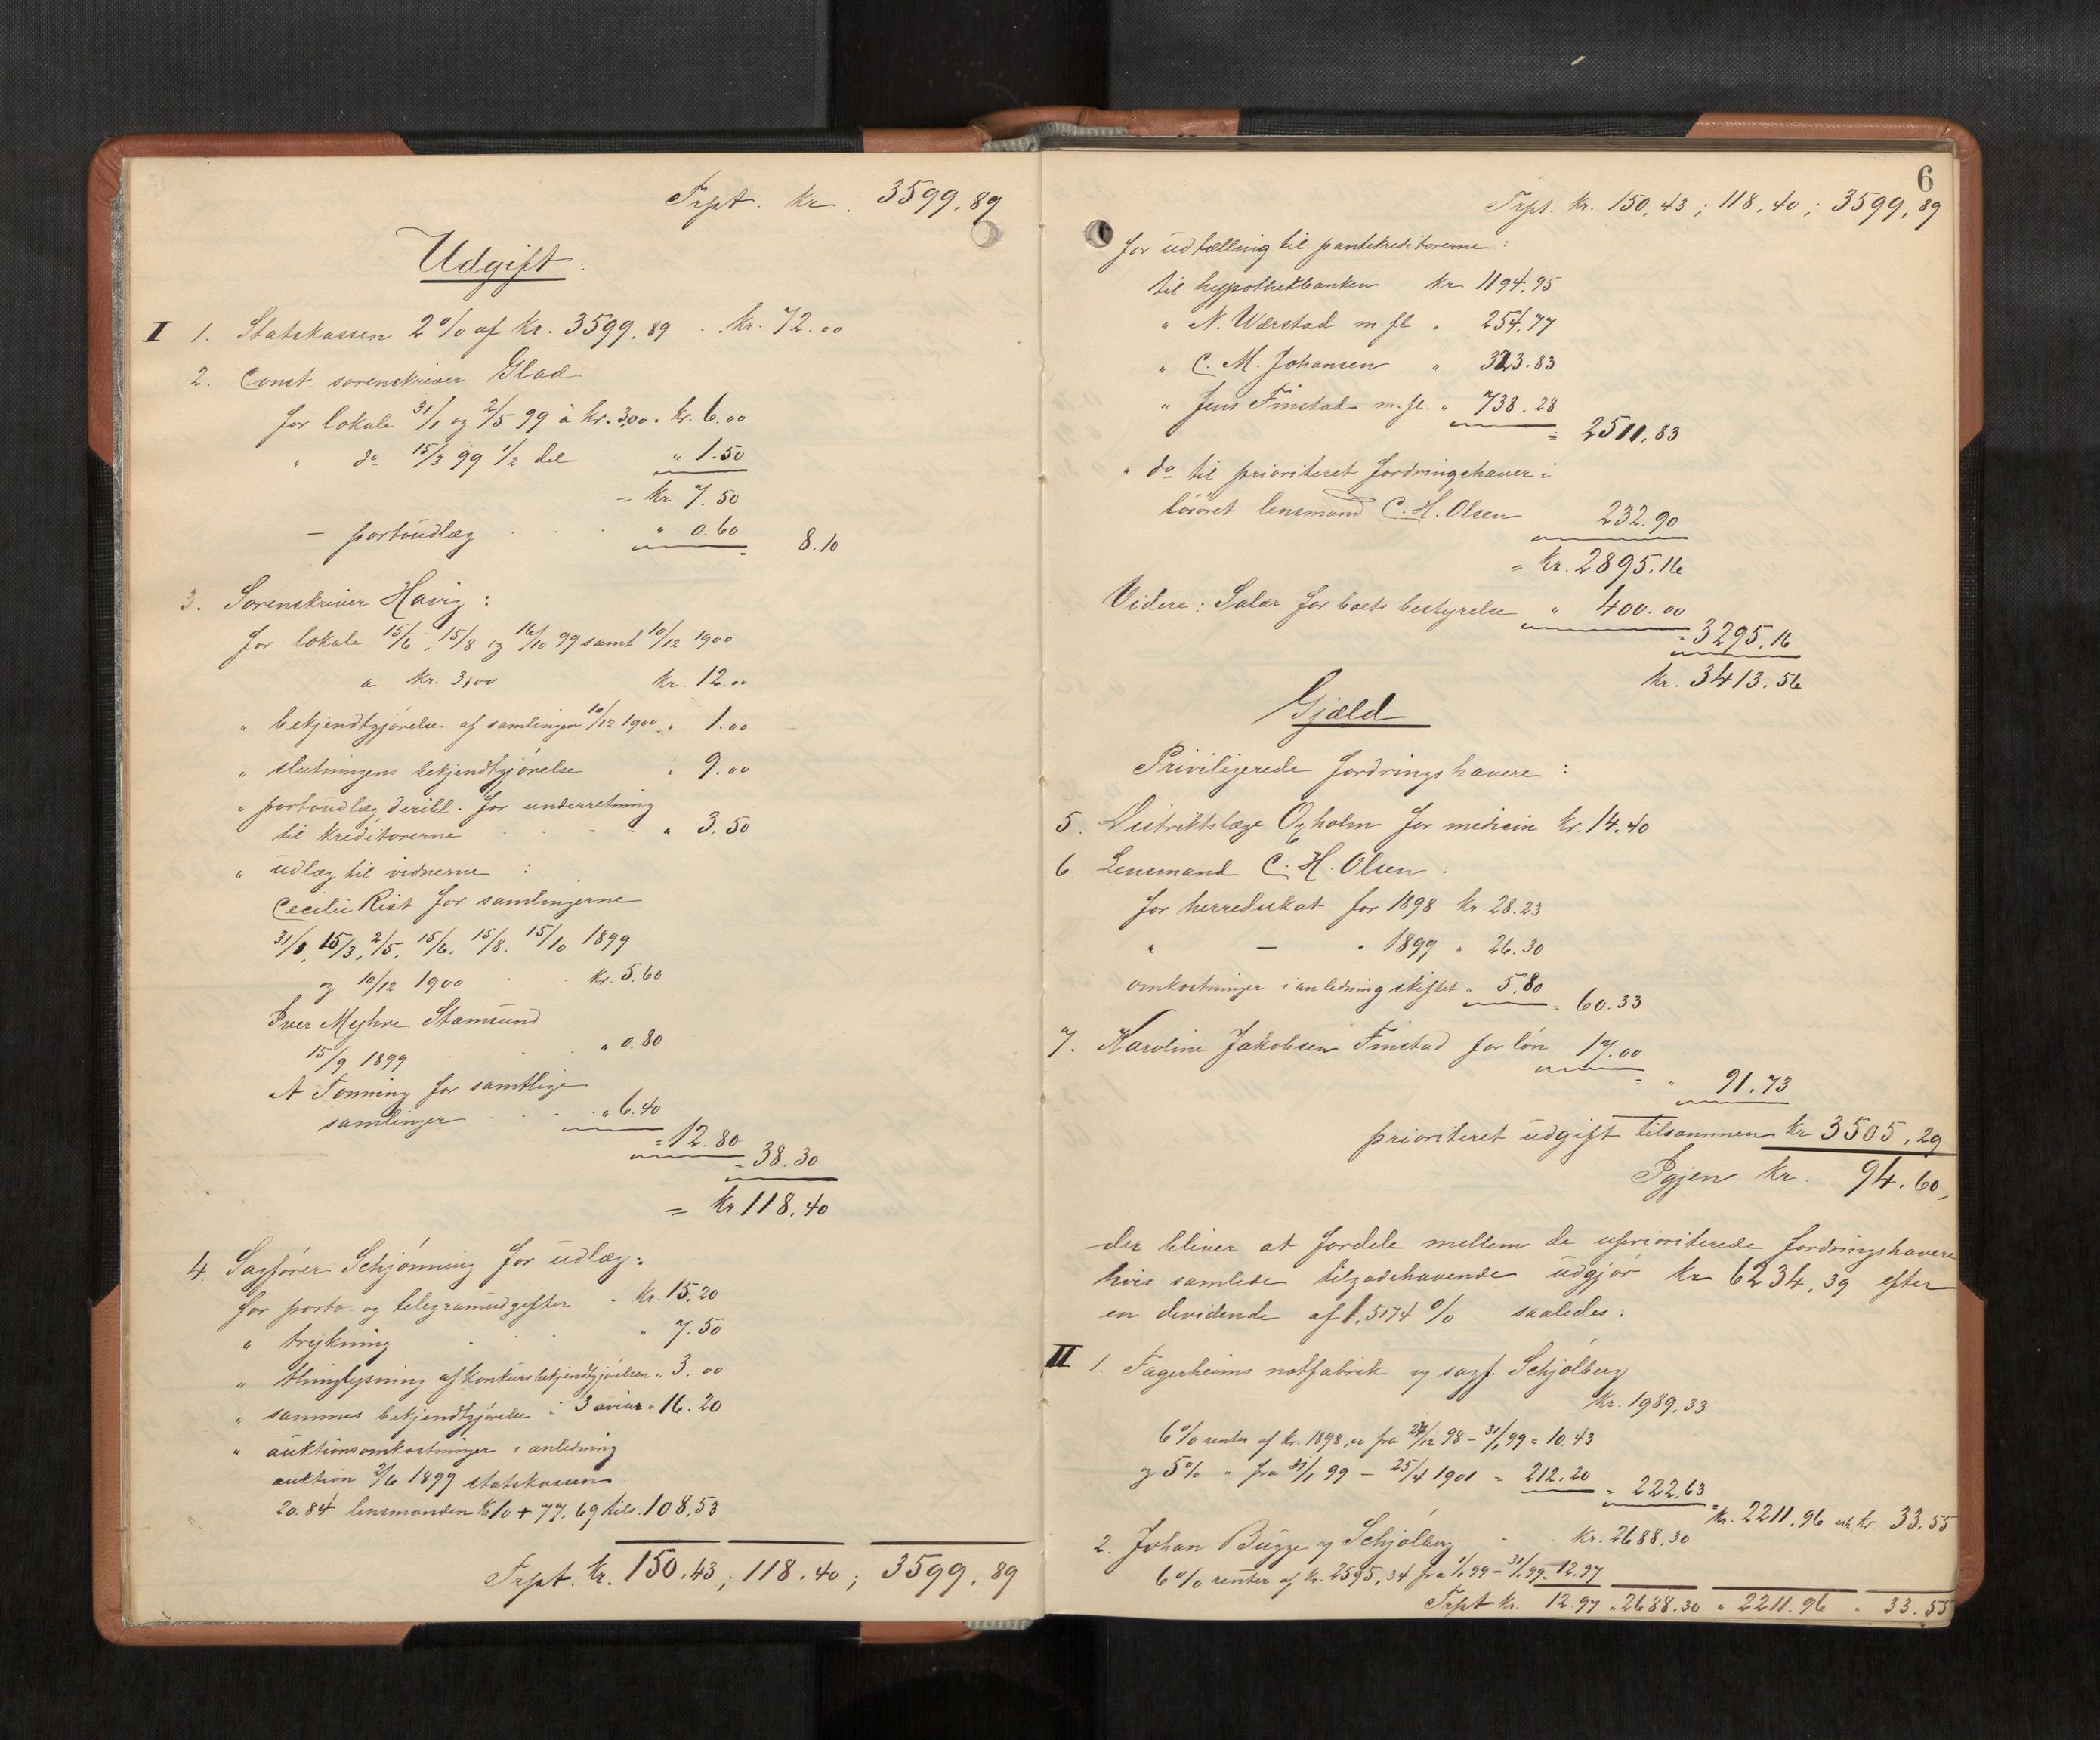 Trpt. kr. 3599.89
Udgift:
I 1. Statskassen 2% af kr. 3599.89 . kr. 72.00
2. Const. sorenskriver Glad
for lokale 31/1 og 2/5 99 à kr. 3,00 = kr. 6.00
" do 15/3 99 1/2 del " 1.50
= kr 7.50
— portoudlæg " 0.60 = 8.10
3. Sorenskriver Havig:
for lokale 15/6, 15/8 og 16/10 99 samt 10/12 1900
a kr. 3,00 kr. 12.00
" bekjendtgjørelse af samlingen 10/12 1900 " 1.00
" slutningens bekjendtgjørelse " 9.00
" portoudlæg deribl. for underretning
til kreditorerne " 3.50
" udlæg til vidnerne:
Cecilie Rist for samlingerne
31/1, 15/3, 2/5, 15/6, 15/8, 15/10 1899
og 10/12 1900 kr. 5.60
Iver Myhre Stamsund
15/9 1899 " 0.80
A Tonning for samtlige
samlinger " 6.40
= 12.80
= 38.30
= kr. 118.40
4. Sagfører Schjønning for udlæg:
for porto- og telegramudgifter - kr. 15.20
" trykning " 7.50
" thinglysning af konkursbekjendtgjørelsen " 3.00
" sammes bekjendtgjørelse i 3 aviser " 16.20
" auktionsomkostninger i anledning
auktion 2/6 1899 statskassen
20.84 lensmanden kr 10 + 77.69 tils. 108,53
Trpt. kr. 150.43; 118.40; 3599.89
6
Trpt. kr. 150.43; 118.40; 3599.89
for udtælling til pantekreditorerne:
til hypothekbanken kr 1194.95
" N. Wærstad m. fl. " 254.77
" C. M. Johansen " 323.83
" Jens Finstad m. fl. " 738.28
= 2511.83
" do til prioriteret fordringshaver i
løsøret lensmand C. H. Olsen 232.90
= kr. 2895.16
Videre: Salær for boets bestyrelse " 400.00
= 3295.16
kr. 3413.56
Gjæld
Priviligerede fordringshavere:
5. Distriktslæge Oxholm for medicin kr. 14.40
6. Lensmand C. H. Olsen:
for herredsskat for 1898 kr. 28.23
" — " 1899 " 26.30
omkostninger i anledning skiftet " 5.80 = 60.33
7. Karoline Jakobsen Finstad for løn 17.00
= " 91.73
prioriteret udgift tilsammen kr 3505.29
Igjen kr. 94.60,
der bliver at fordele mellem de uprioriterede fordringshavere
hvis samlede tilgodehavende udgjør kr 6234,39 efter
en devidende af 1.5174 % saaledes:
II 1. Fagerheims notfabrik v sagf. Schjølberg
kr. 1989.33
6% renter af kr. 1898,00 fra 27/12 98 - 31/1 99 = 10.43
og 5% " fra 31/1 99 - 25/4 1901 = 212.20 = 222.63
= kr. 2211.96 erh. kr. 33.55
2. Johan Bugge v Schjølberg - kr. 2688.30
6% renter af kr. 2595,34 fra 1/1 99 - 31/1 99 = 12.97
Trpt kr. 12.97 " 2688.30 " 2211.96 " 33.55